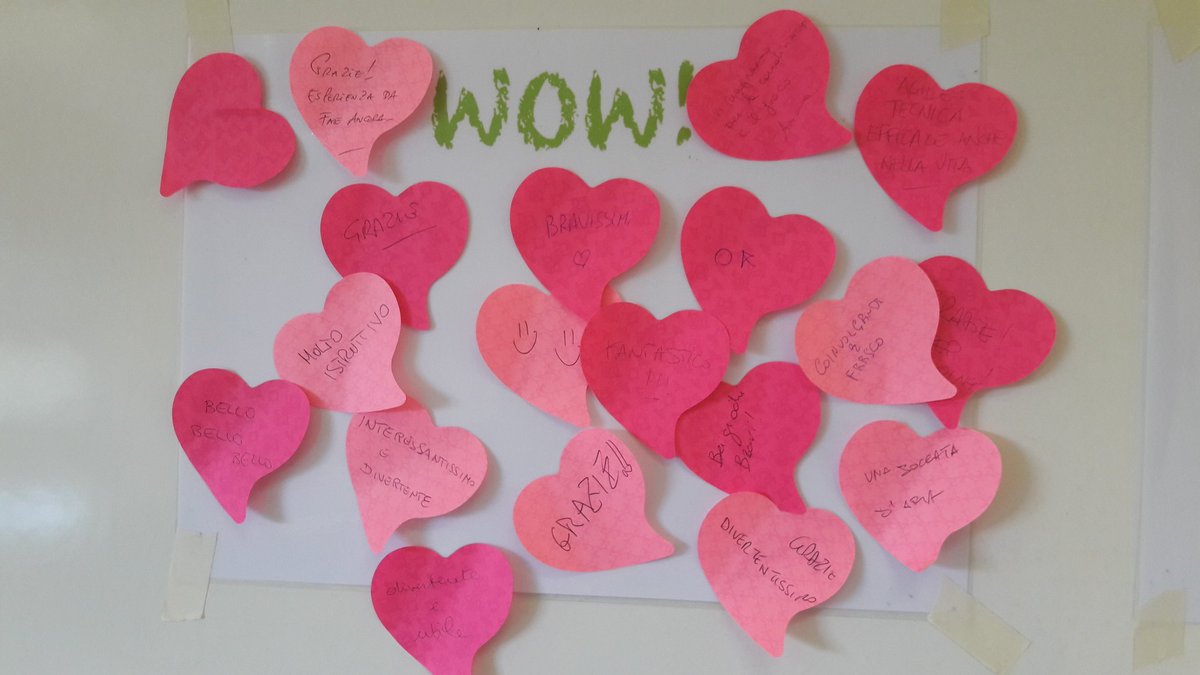 GRAZIE!
ESPERIENZA DA
FARE ANCORA
WOW!
AGILE:
TECNICA
EFFICACE ANCHE
NELLA VITA
GRAZIE
BRAVISSIMI
♡
OK
MOLTO
ISTRUTTIVO
FANTASTICO
!!!
COINVOLGENTE
E
FRESCO
GRAZIE!
BELLO
BELLO
BELLO
INTERESSANTISSIMO
E
DIVERTENTE
GRAZIE!!
Bravi!
UNA BOCCATA
D'ARIA
GRAZIE
DIVERTENTISSIMO
divertente
e
utile